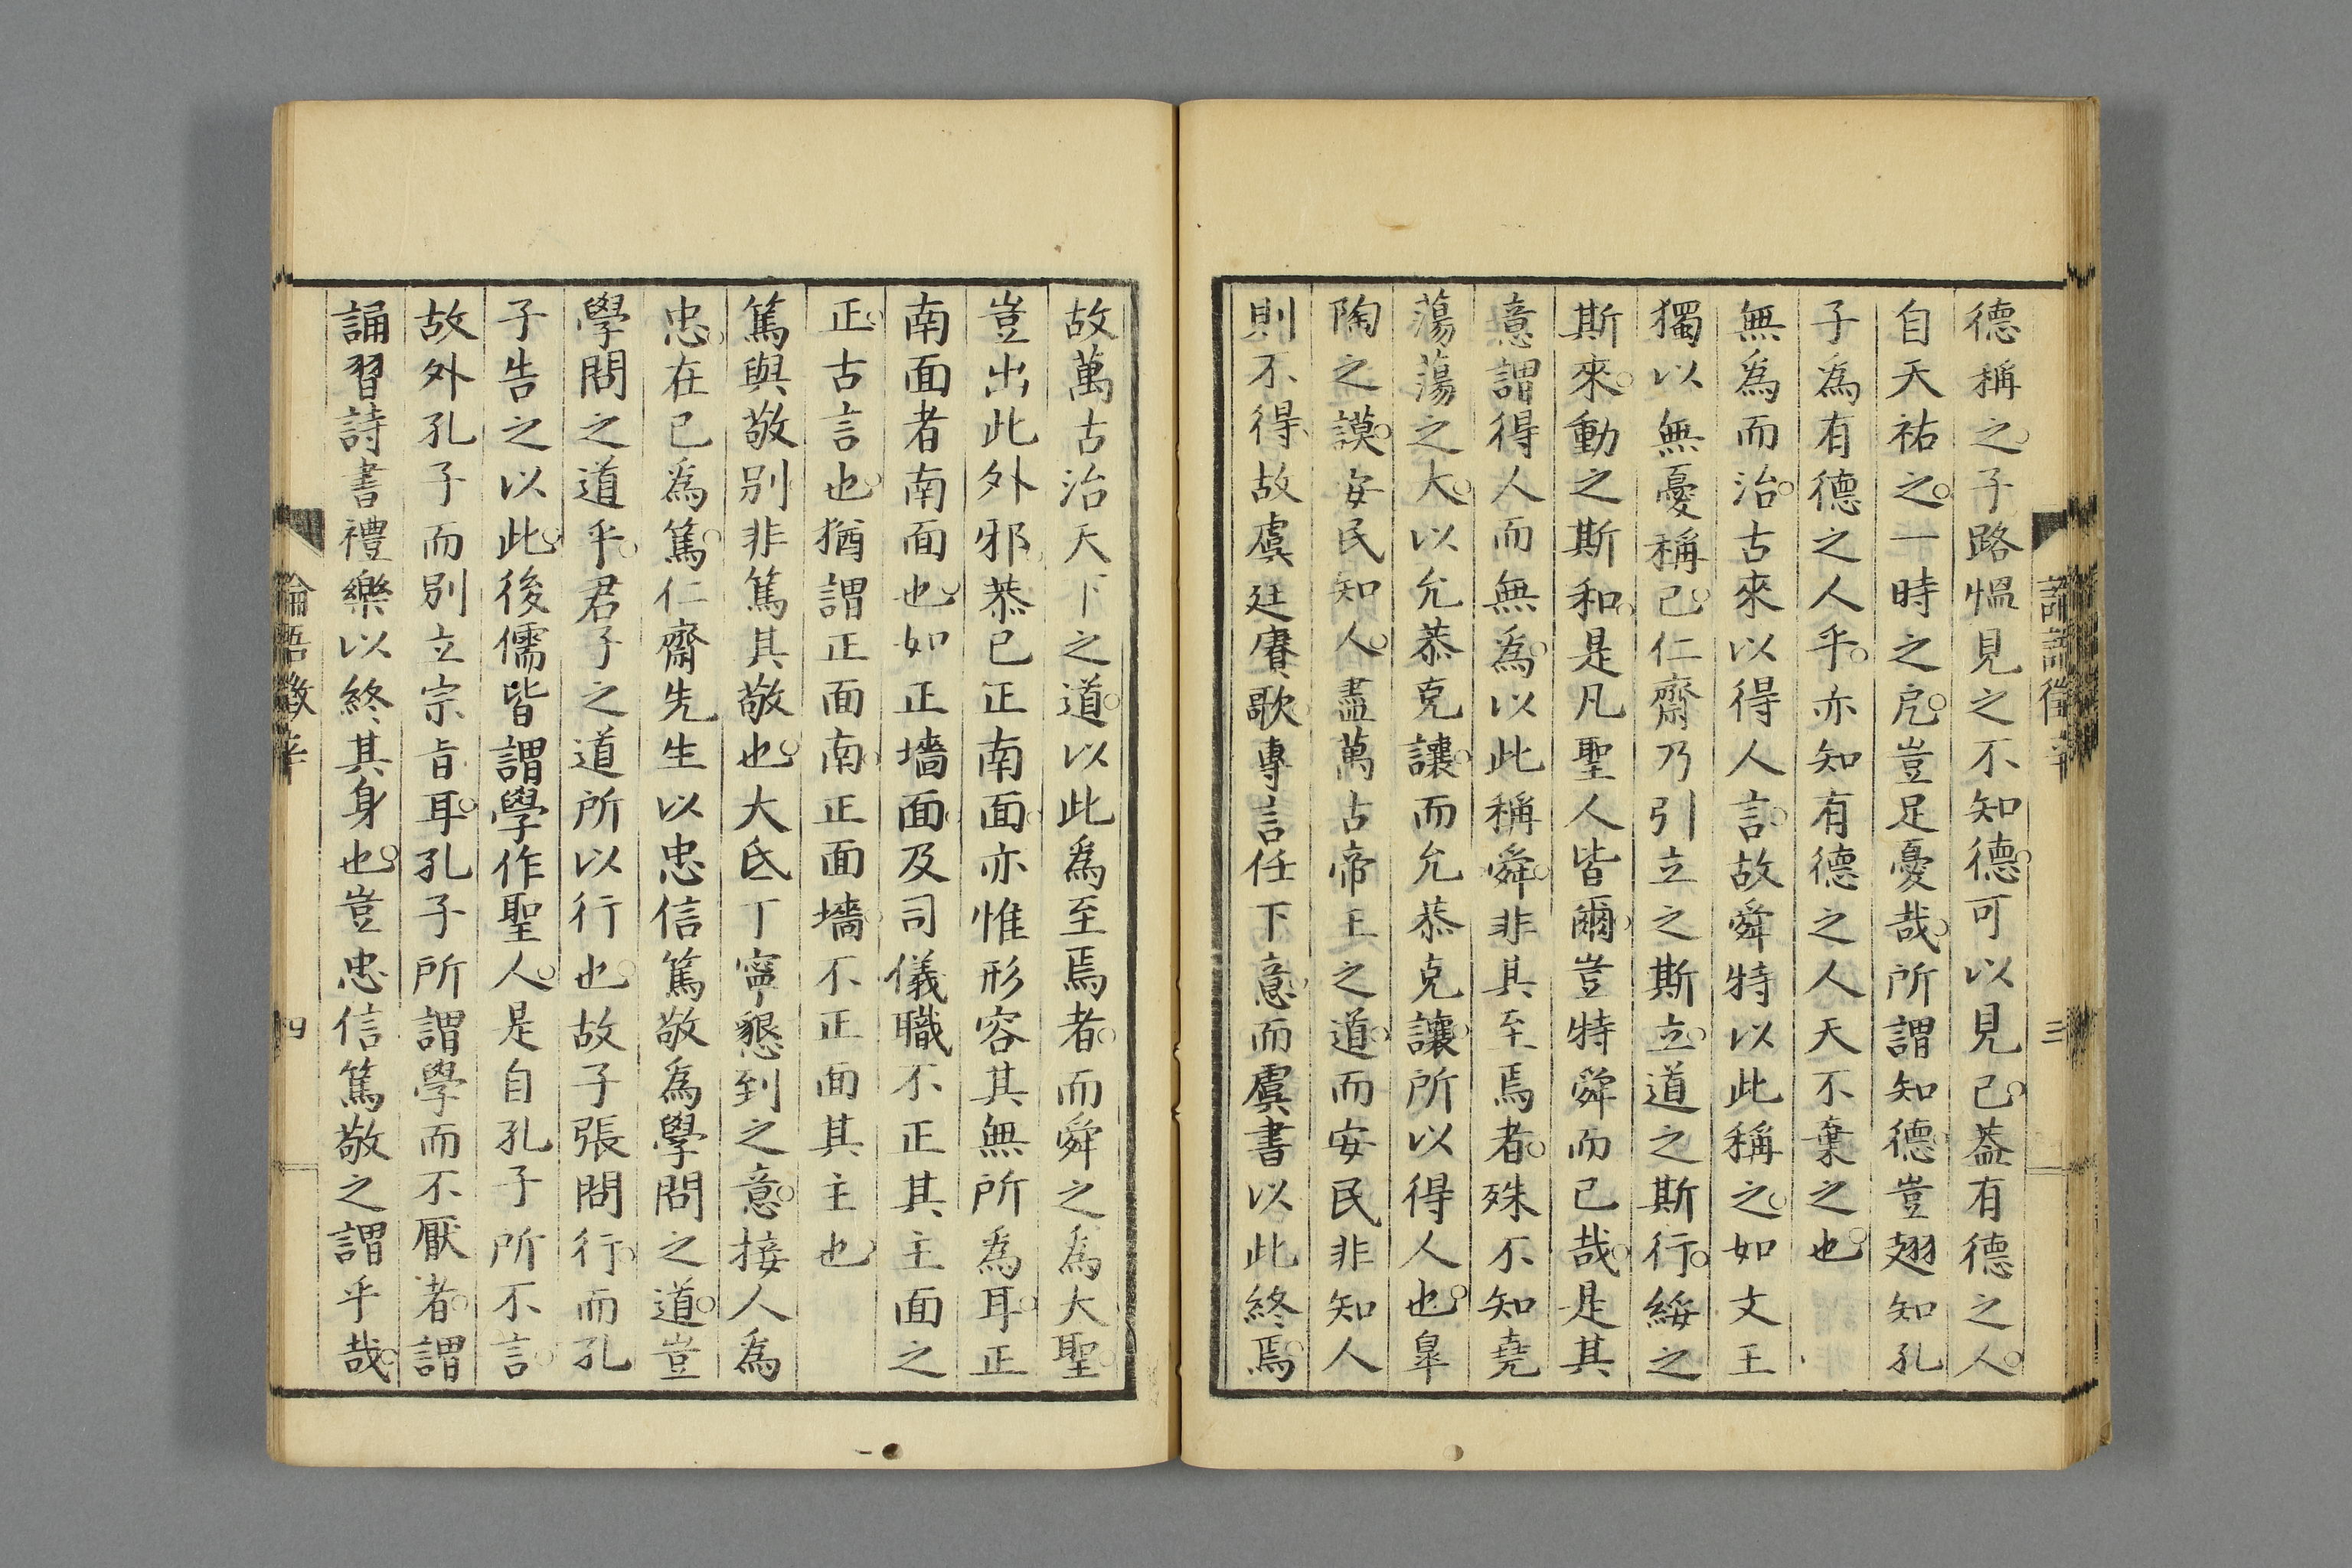 論語徵辛
三
德稱之子路慍見之不知德可以見已葢有德之人
自天祐之一時之戹豈足憂哉所謂知德豈翅知孔
子爲有德之人乎亦知有德之人天不棄之也
無爲而治古來以得人言故舜特以此稱之如文王
獨以無憂稱已仁齋乃引立之斯立道之斯行綏之
斯來動之斯和是凡聖人皆爾豈特舜而已哉是其
意謂得人而無爲以此稱舜非其至焉者殊不知堯
蕩蕩之大以允恭克讓而允恭克讓所以得人也皐
陶之謨安民知人盡萬古帝王之道而安民非知人
則不得故虞廷賡歌專言任下意而虞書以此終焉
故萬古治天下之道以此爲至焉者而舜之爲大聖
豈出此外邪恭已正南面亦惟形容其無所爲耳正
南面者南面也如正墻面及司儀職不正其主面之
正古言也猶謂正面南正面墻不正面其主也
篤與敬別非篤其敬也大氐丁寧懇到之意接人爲
忠在已爲篤仁齋先生以忠信篤敬爲學問之道豈
學問之道乎君子之道所以行也故子張問行而孔
子告之以此後儒皆謂學作聖人是自孔子所不言
故外孔子而別立宗旨耳孔子所謂學而不厭者謂
誦習詩書禮樂以終其身也豈忠信篤敬之謂乎哉
論語徵辛
四